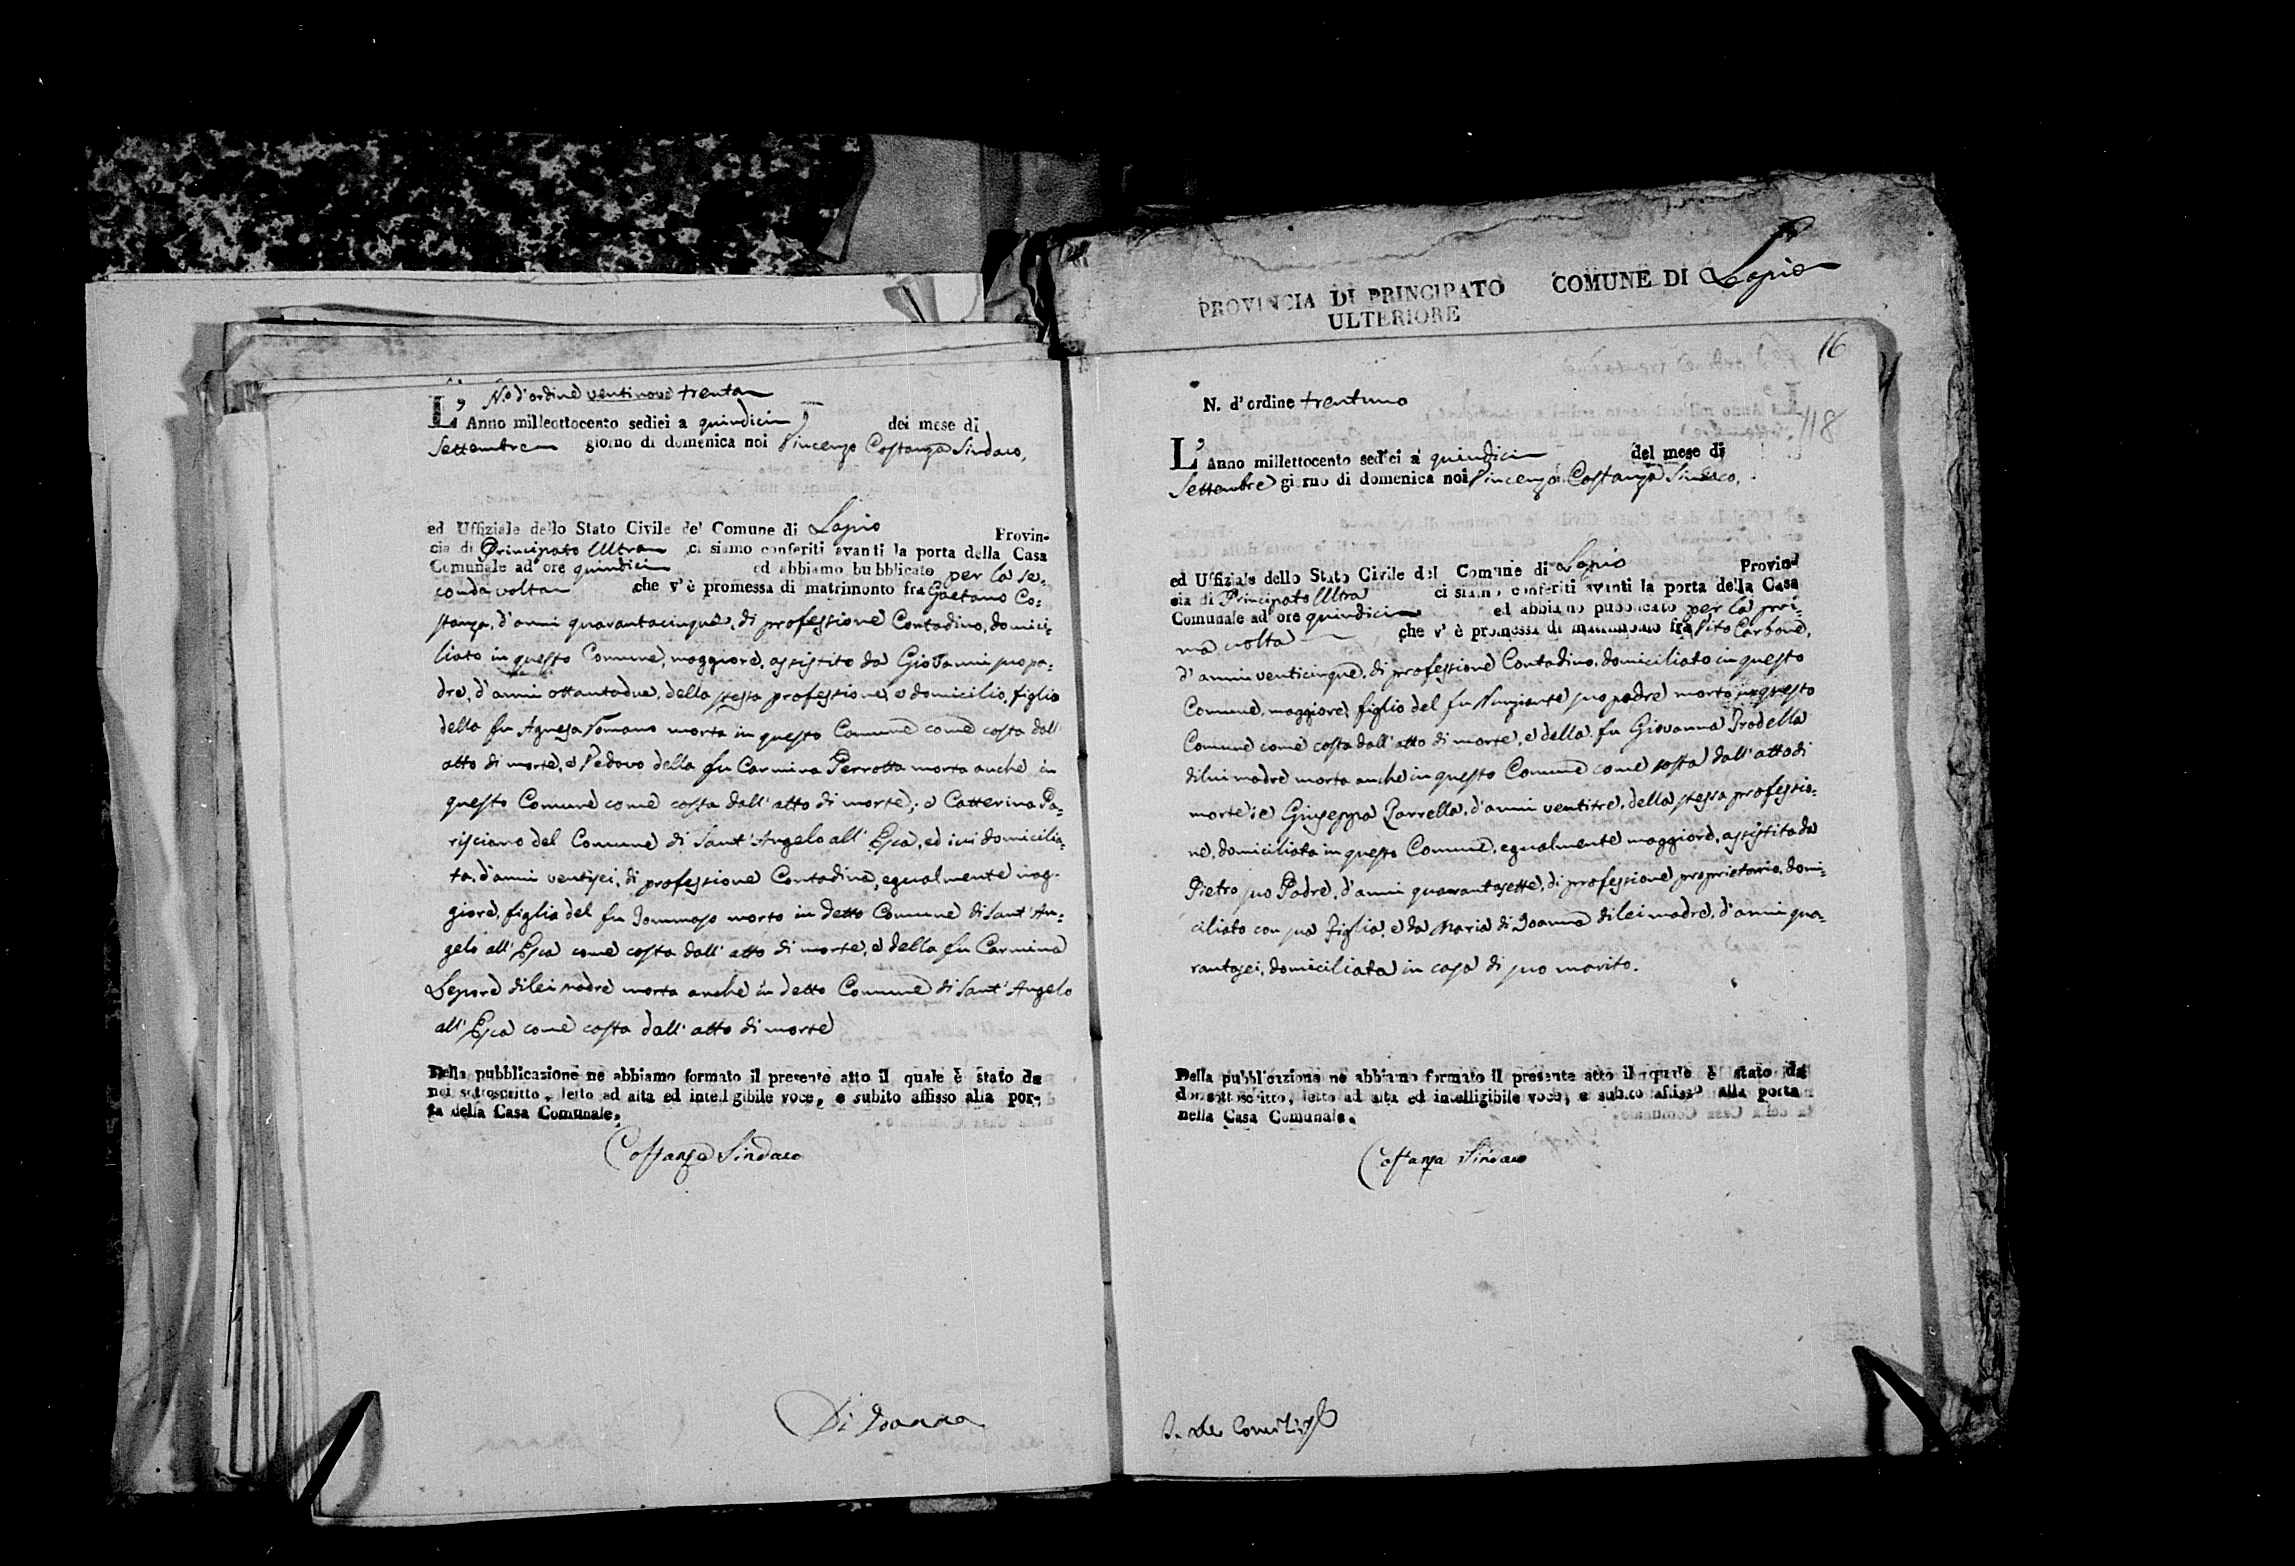 N.o d'ordine ventinove trenta
L' Anno milleottocento sedici a quindici del mese di
Settembre giorno di domenica noi Vincenzo Costanza Sindaco,
ed Uffiziale dello Stato Civile del Comune di Lapio Provin-
cia di Principato Ultra ci siamo conferiti avanti la porta della Casa
Comunale ad ore quindici ed abbiamo bubblicato per la se-
conda volta che v'è promessa di matrimonto fra Gaetano Co-
stanza, d'anni quarantacinque, di professione Contadino, domici-
liato in questo Comune, maggiore, assistito da Giovanni suo pa-
dre, d'anni ottantadue, della stessa professione, e domicilio, figlio
della fu Agnesa Romano morta in questo Comune come costa dall'
atto di morte, e Vedovo della fu Carmina Perrotta morta anche in
questo Comune come costa dall'atto di morte; e Catterina Pa-
risciano del Comune di Sant'Angelo all'Esca, ed ivi domicilia-
ta, d'anni ventisei, di professione Contadina, egualmente mag-
giore, figlia del fu Tommaso morto in detto Comune di Sant'An-
gelo all'Esca come costa dall'atto di morte, e della fu Carmina
Lepore di lei madre morta anche in detto Comune di Sant'Angelo
all'Esca come costa dall'atto di morte
Della pubblicazione ne abbiamo formato il presente atto il quale è stato da
noi sottoscritto, letto ad alta ed intelligibile voce, e subito affisso alla por-
ta della Casa Comunale.
Costanza Sindaco
Di Ioanna
PROVINCIA DI PRINCIPATO COMUNE DI Lapio
ULTERIORE
16
N. d'ordine trentuno
718
L' Anno millettocento sedici a quindici del mese di
Settembre giorno di domenica noi Vincenzo Costanza Sindaco,
ed Uffiziale dello Stato Civile del Comune di Lapio Provin-
cia di Principato Ultra ci siamo conferiti avanti la porta della Casa
Comunale ad ore quindici ed abbiamo pubblicato per la pri-
ma volta che v'è promessa di matrimonio fra Vito Carbone,
d'anni venticinque, di professione Contadino, domiciliato in questo
Comune, maggiore, figlio del fu Nunziante suo padre morto in questo
Comune come costa dall'atto di morte, e della fu Giovanna Prodella
di lui madre morta anche in questo Comune come costa dall'atto di
morte; e Giuseppa Zarrella, d'anni ventitre, della stessa professio-
ne, domiciliata in questo Comune, egualmente maggiore, assistita da
Pietro suo Padre, d'anni quarantasette, di professione proprietario, domi-
ciliato con sua Figlia, e da Maria di Ioanna di lei madre, d'anni qua-
rantasei, domiciliata in casa di suo marito.
Della pubblicazione ne abbiamo formato il presente atto il quale è stato da
sottoscritto, letto ad alta ed intelligibile voce, e subito affisso alla porta
nella Casa Comunale.
Costanza Sindaco